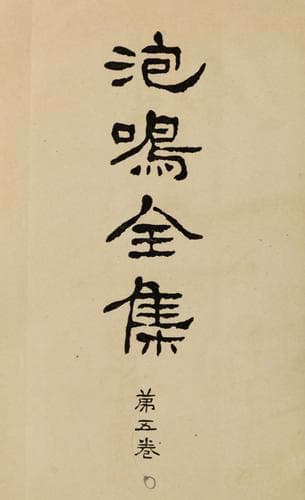 泡鳴全集
第五卷